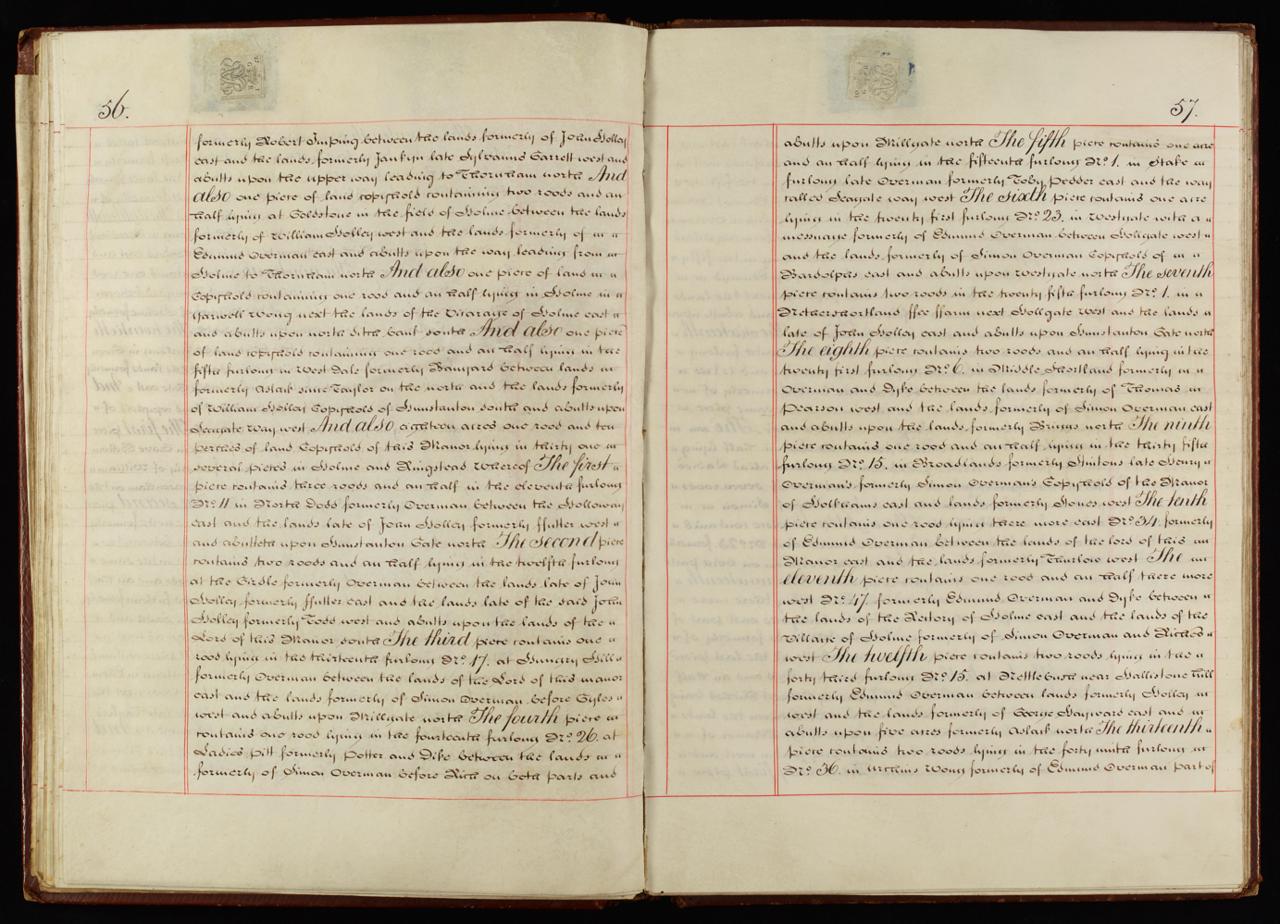 56.
formerly Robert Imping between the lands formerly of John Holley
east and the lands formerly Jankyn late Sylvanus Garrett west and
abutts upon the upper way leading to Thornham north And
also one piece of land copyhold containing two roods and an
half lying at Goldstone in the field of Holme between the lands
formerly of William Holley west and the lands formerly of
Edmund Overman east and abutts upon the way leading from
Holme to Thornham north And also one piece of land
Copyhold containing one rood and an half lying in Holme in
Wong next the lands of the Vicarage of Holme east
and abutts upon north ditch south And also one piece
of land copyhold containing one rood and an half lying in the
fifth furlong in West Dale formerly Banyard between lands
formerly Aslack since Taylor on the north and the lands formerly
of William Holley Copyhold of Hunstanton south and abutts upon
Seagate Way west And also eighteen acres one rood and ten
perches of land Copyhold of this Manor lying in thirty one
several pieces in Holme and Ringstead whereof The first
piece contains three roods and an half in the eleventh furlong
No. 11 in North Dodd formerly Overman between the Holloway
east and the lands late of John Holley formerly ffutter west
and abutteth upon Hunstanton Gate north The Second piece
contains two roods and an half lying in the twelfth furlong
at the Girdle formerly Overman between the lands late of John
Holley formerly ffutter east and the lands late of the said John
Holley formerly Todd west and abutts upon the lands of the
Lord of this Manor south The third piece contains one
rood lying in the thirteenth furlong No. 17. at Hungry Hills
formerly Overman between the lands of the Lord of this manor
east and the lands formerly of Simon Overman before Gyles
west and abutts upon Millgate north The fourth piece
contains one rood lying in the fourteenth furlong No. 26. at
Ladies pitt formerly Potter and Dike between the lands
formerly of Simon Overman before Rich on both parts and
57.
abutts upon Millgate north The fifth piece contains one acre
and an half lying in the fifteenth furlong No. 1. in Stake
furlong late Overman formerly Toby Pedder east and the way
called Seagate way west The sixth piece contains one acre
lying in the twenty first furlong No. 23. in Westgate with a
messuage formerly of Edmund Overman between Hollgate west
and the lands formerly of Simon Overman Copyhold of
Bardolphs east and abutts upon Westgate north The seventh
piece contains two roods in the twenty fifth furlong No. 1. in
Nethershortland next Hollgate West and the lands
late of John Holley east and abutts upon Hunstanton Gate north
The eighth piece contains two roods and an half lying in the
twenty first furlong No. 6. in Middle Shortland formerly
Overman and Dyke between the lands formerly of Thomas
Pearson west and the lands formerly of Simon Overman east
and abutts upon the lands formerly Briggs north The ninth
piece contains one rood and an half lying in the thirty fifth
furlong No. 15. in Broadlands formerly Hintons late Henry
Overmans formerly Simon Overman's Copyhold of the Manor
of Holleyams east and lands formerly Jones west The tenth
piece contains one rood lying there more east No. 34. formerly
of Edmund Overman between the lands of the lord of this
Manor east and the lands formerly Thurlow west The
eleventh piece contains one rood and an half there more
west No. 47. formerly Edmund Overman and Dyke between
the lands of the Rectory of Holme east and the lands of the
Village of Holme formerly of Simon Overman and Riches
west The twelfth piece contains two roods lying in the
forty third furlong No. 15. at Nettlebush near Hallistone Hill
formerly Edmund Overman between lands formerly Holley
west and the lands formerly of George Hayward east and
abutts upon five acres formerly Aslack north The thirteenth
piece contains two roods lying in the forty ninth furlong
No. 36. in Urchins Wong formerly of Edmund Overman part of